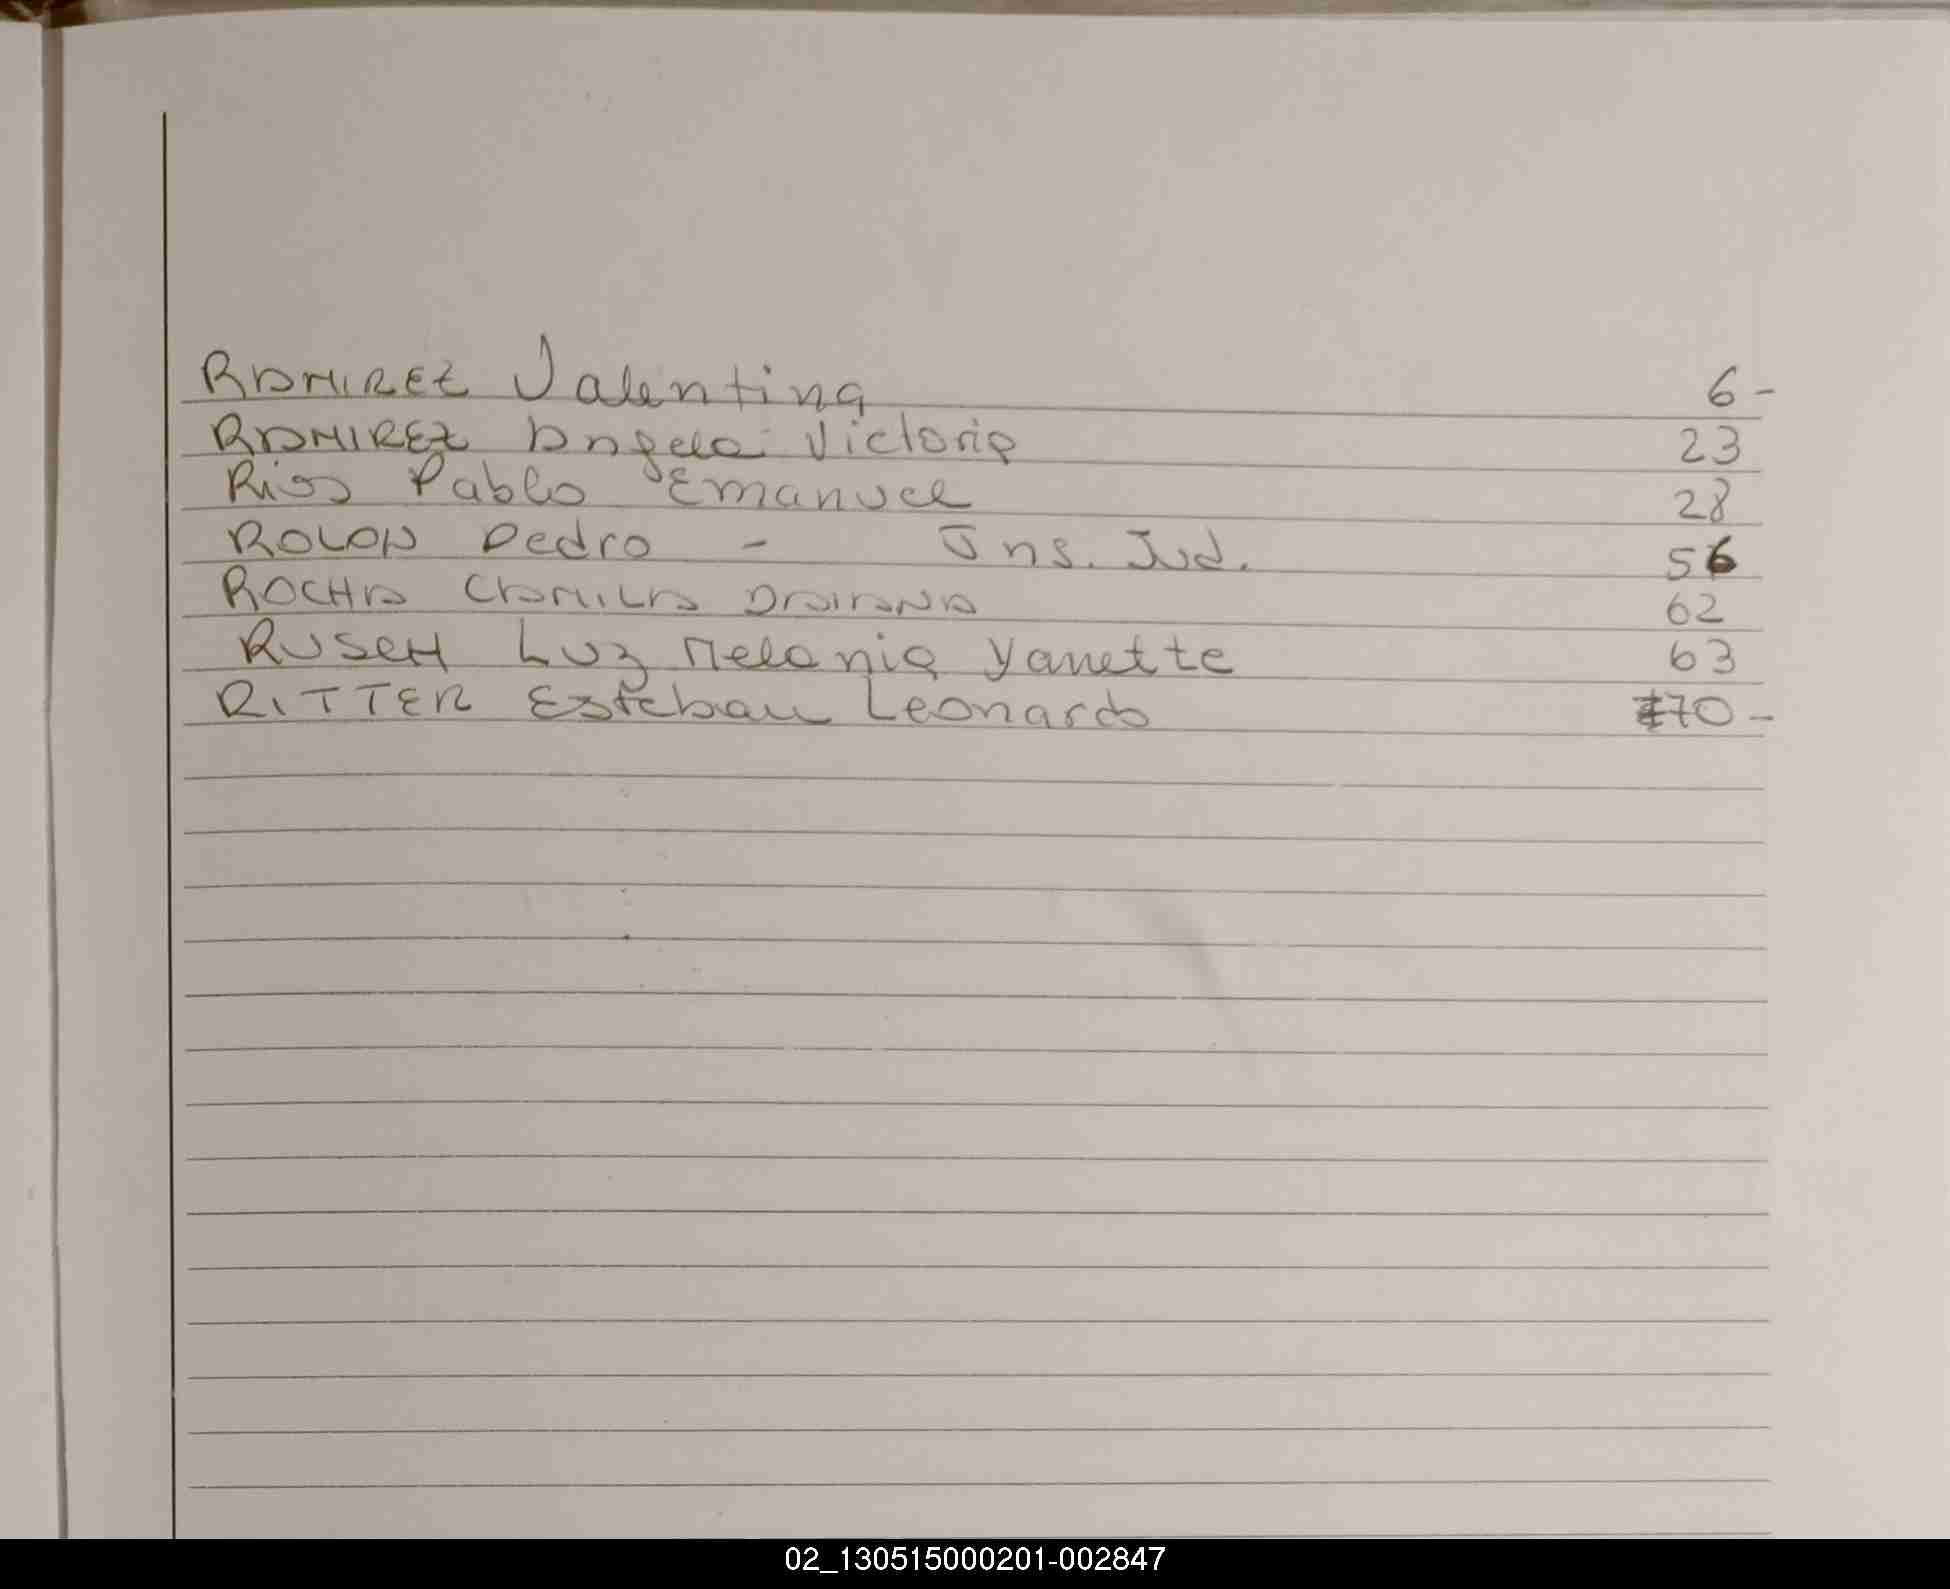 RAMIREZ Valentina 6-
RAMIREZ Angela Victoria 23
Rios Pablo Emanuel 28
ROLON Pedro - Ins. Jud. 56
ROCHA CAMILA DAIANA 62
RUSCH Luz Melania Yanette 63
RITTER Esteban Leonardo 70-
02_130515000201-002847